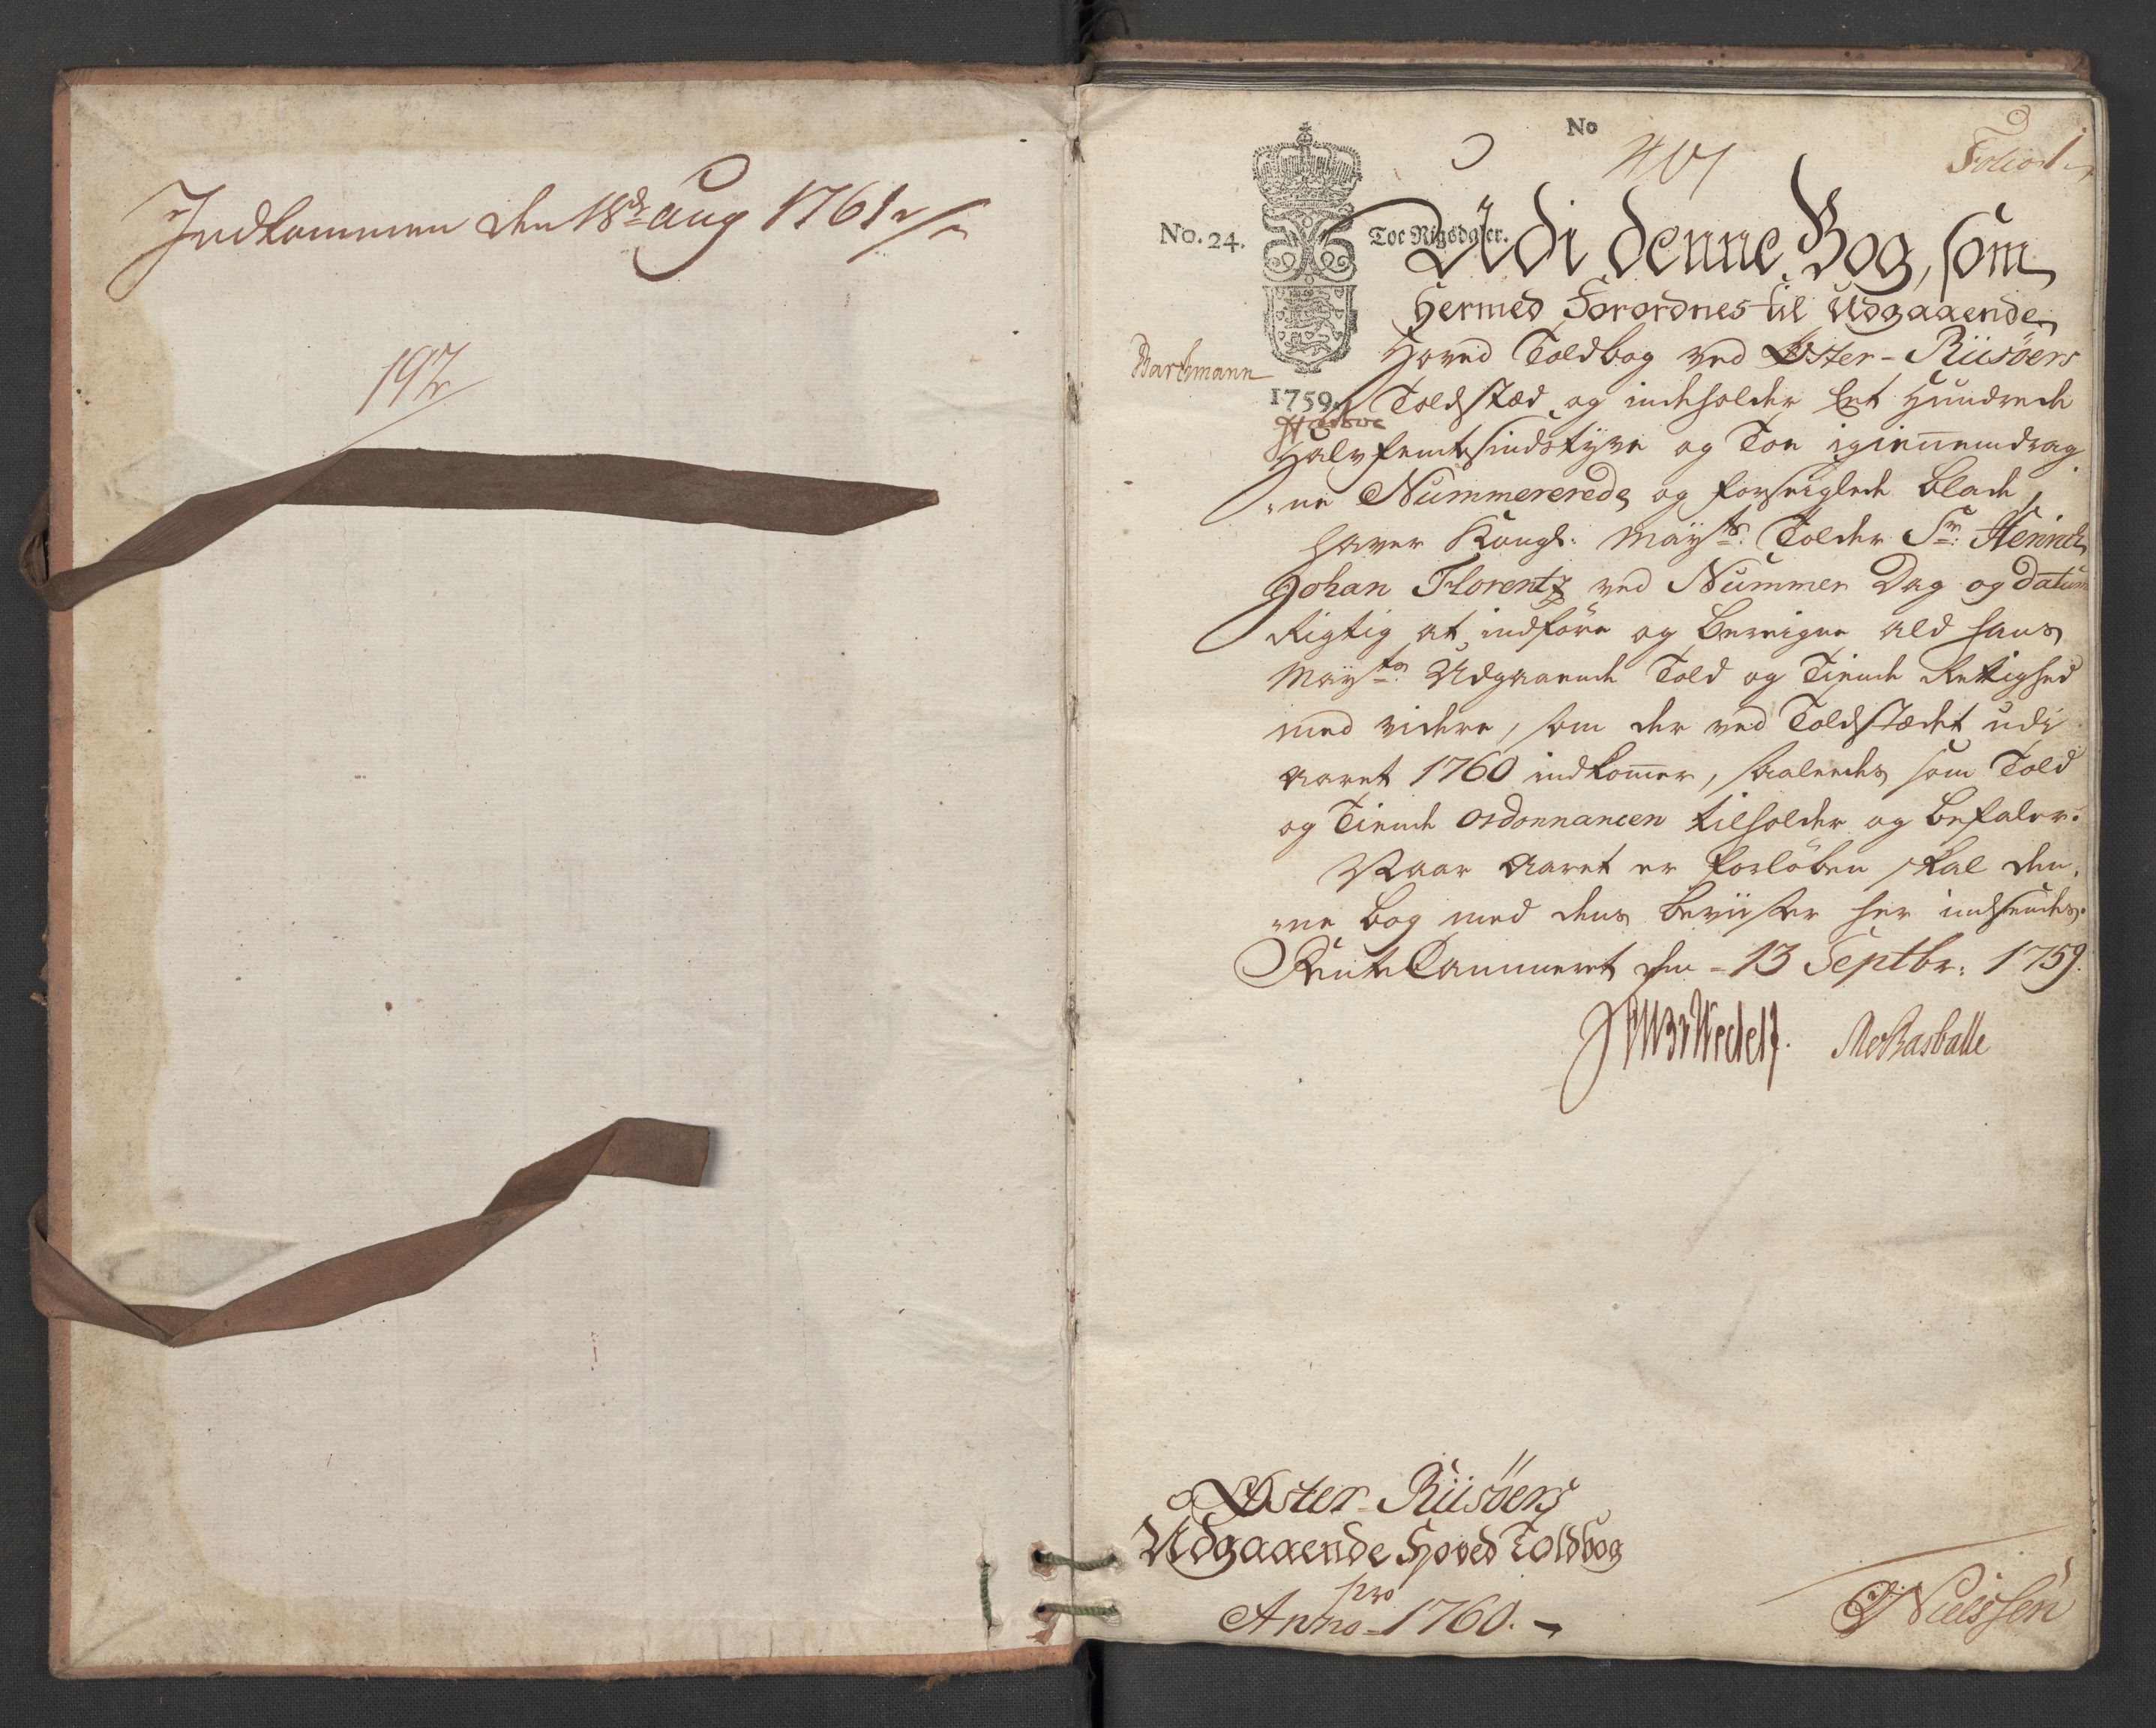 Indkommen den 18de aug 1761
192
No
Folio 1
No. 24.
Toe Rigsdaler.
Udi denne Bog, som
hermed Forordnes til Udgaaende
Hoved Toldbog ved Øster-Riisöers
Bachmann
1759.
Toldstæd og indeholder Eet Hundrede
Halvfemtesindstyve og Toe igiennemdrag
:ne Nummererede og forseiglede blade,
haver Kongl: Mayts: Tolder Sr: Hennich
Johan Florentz ved Nummer Dag og datum
Rigtig at indföre og beregne ald hans
Mayts: Udgaaende Told og Tiende Rettighed
med videre, som der ved Toldstædet udi
Aaret 1760 indkom̅er, saaledes som Told
og Tiende Ordonnancen tilholder og befaler.
Naar Aaret er forlöben skal den,
:ne bog med dens beviiser her indsendes.
Rente Cammeret den 13 Septbr: 1759.
Øster-Riisöers
Udgaaende Hoved Toldbog
pro
Anno 1760.
Nielssen